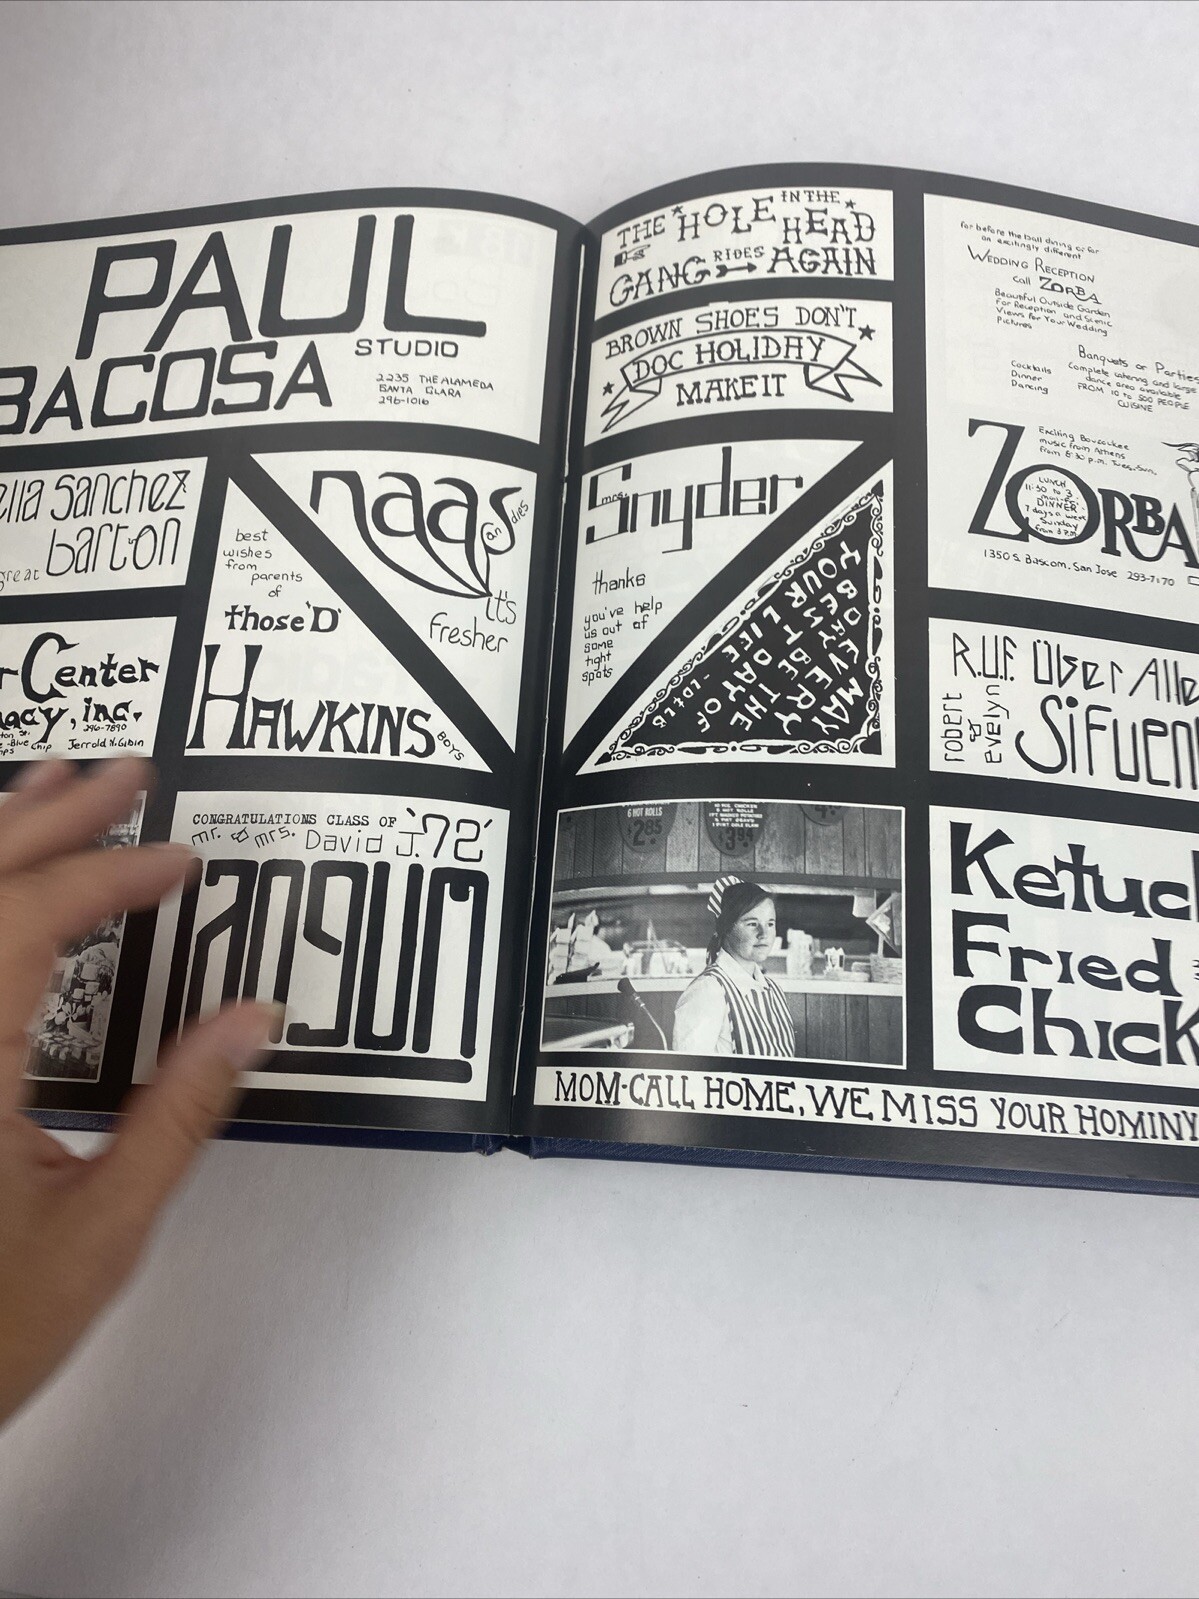 PAUL
BACOSA
STUDIO
2235 THE ALAMEDA
SANTA CLARA
296-1016
ella Sanchez
barton
great
naas
candies
it's
fresher
best
wishes
from
parents
of
those 'D'
HAWKINS
BOYS
r Center
macy, inc.
296-7890
ton St.
e-Blue Chip
mps
Jerrold H. Gibin
CONGRATULATIONS CLASS OF '72'
mr. & mrs. David J.
mangum
THE HOLE IN THE
HEAD
GANG RIDES AGAIN
BROWN SHOES DON'T
DOC HOLIDAY
MAKE IT
mrs. Snyder
thanks
you've help
us out of
some
tight
spots
MAY
EVERY
DAY
BE THE
BEST DAY OF
YOUR LIFE
for before the ball dining or for
an excitingly different
WEDDING RECEPTION
call ZORBA
Beautiful Outside Garden
for Reception and Scenic
Views for Your Wedding
Pictures
Banquets or Parties
Cocktails
Dinner
Dancing
complete catering and large
dance area available
FROM 10 to 500 PEOPLE
CUISINE
Exciting Bouzoukee
music from Athens
from 8:30 p.m. Tues.-Sun.
ZORBA
LUNCH
11:30 to 3
mon-Fri.
DINNER
7 days a week
Sunday
from 3 P.M.
1350 S. Bascom, San Jose 293-7170
R.U.F. Über Alle
robert
&
evelyn
Sifuen
6 HOT ROLLS
$2.85
Ketuc
Fried
Chick
MOM-CALL HOME, WE MISS YOUR HOMINY